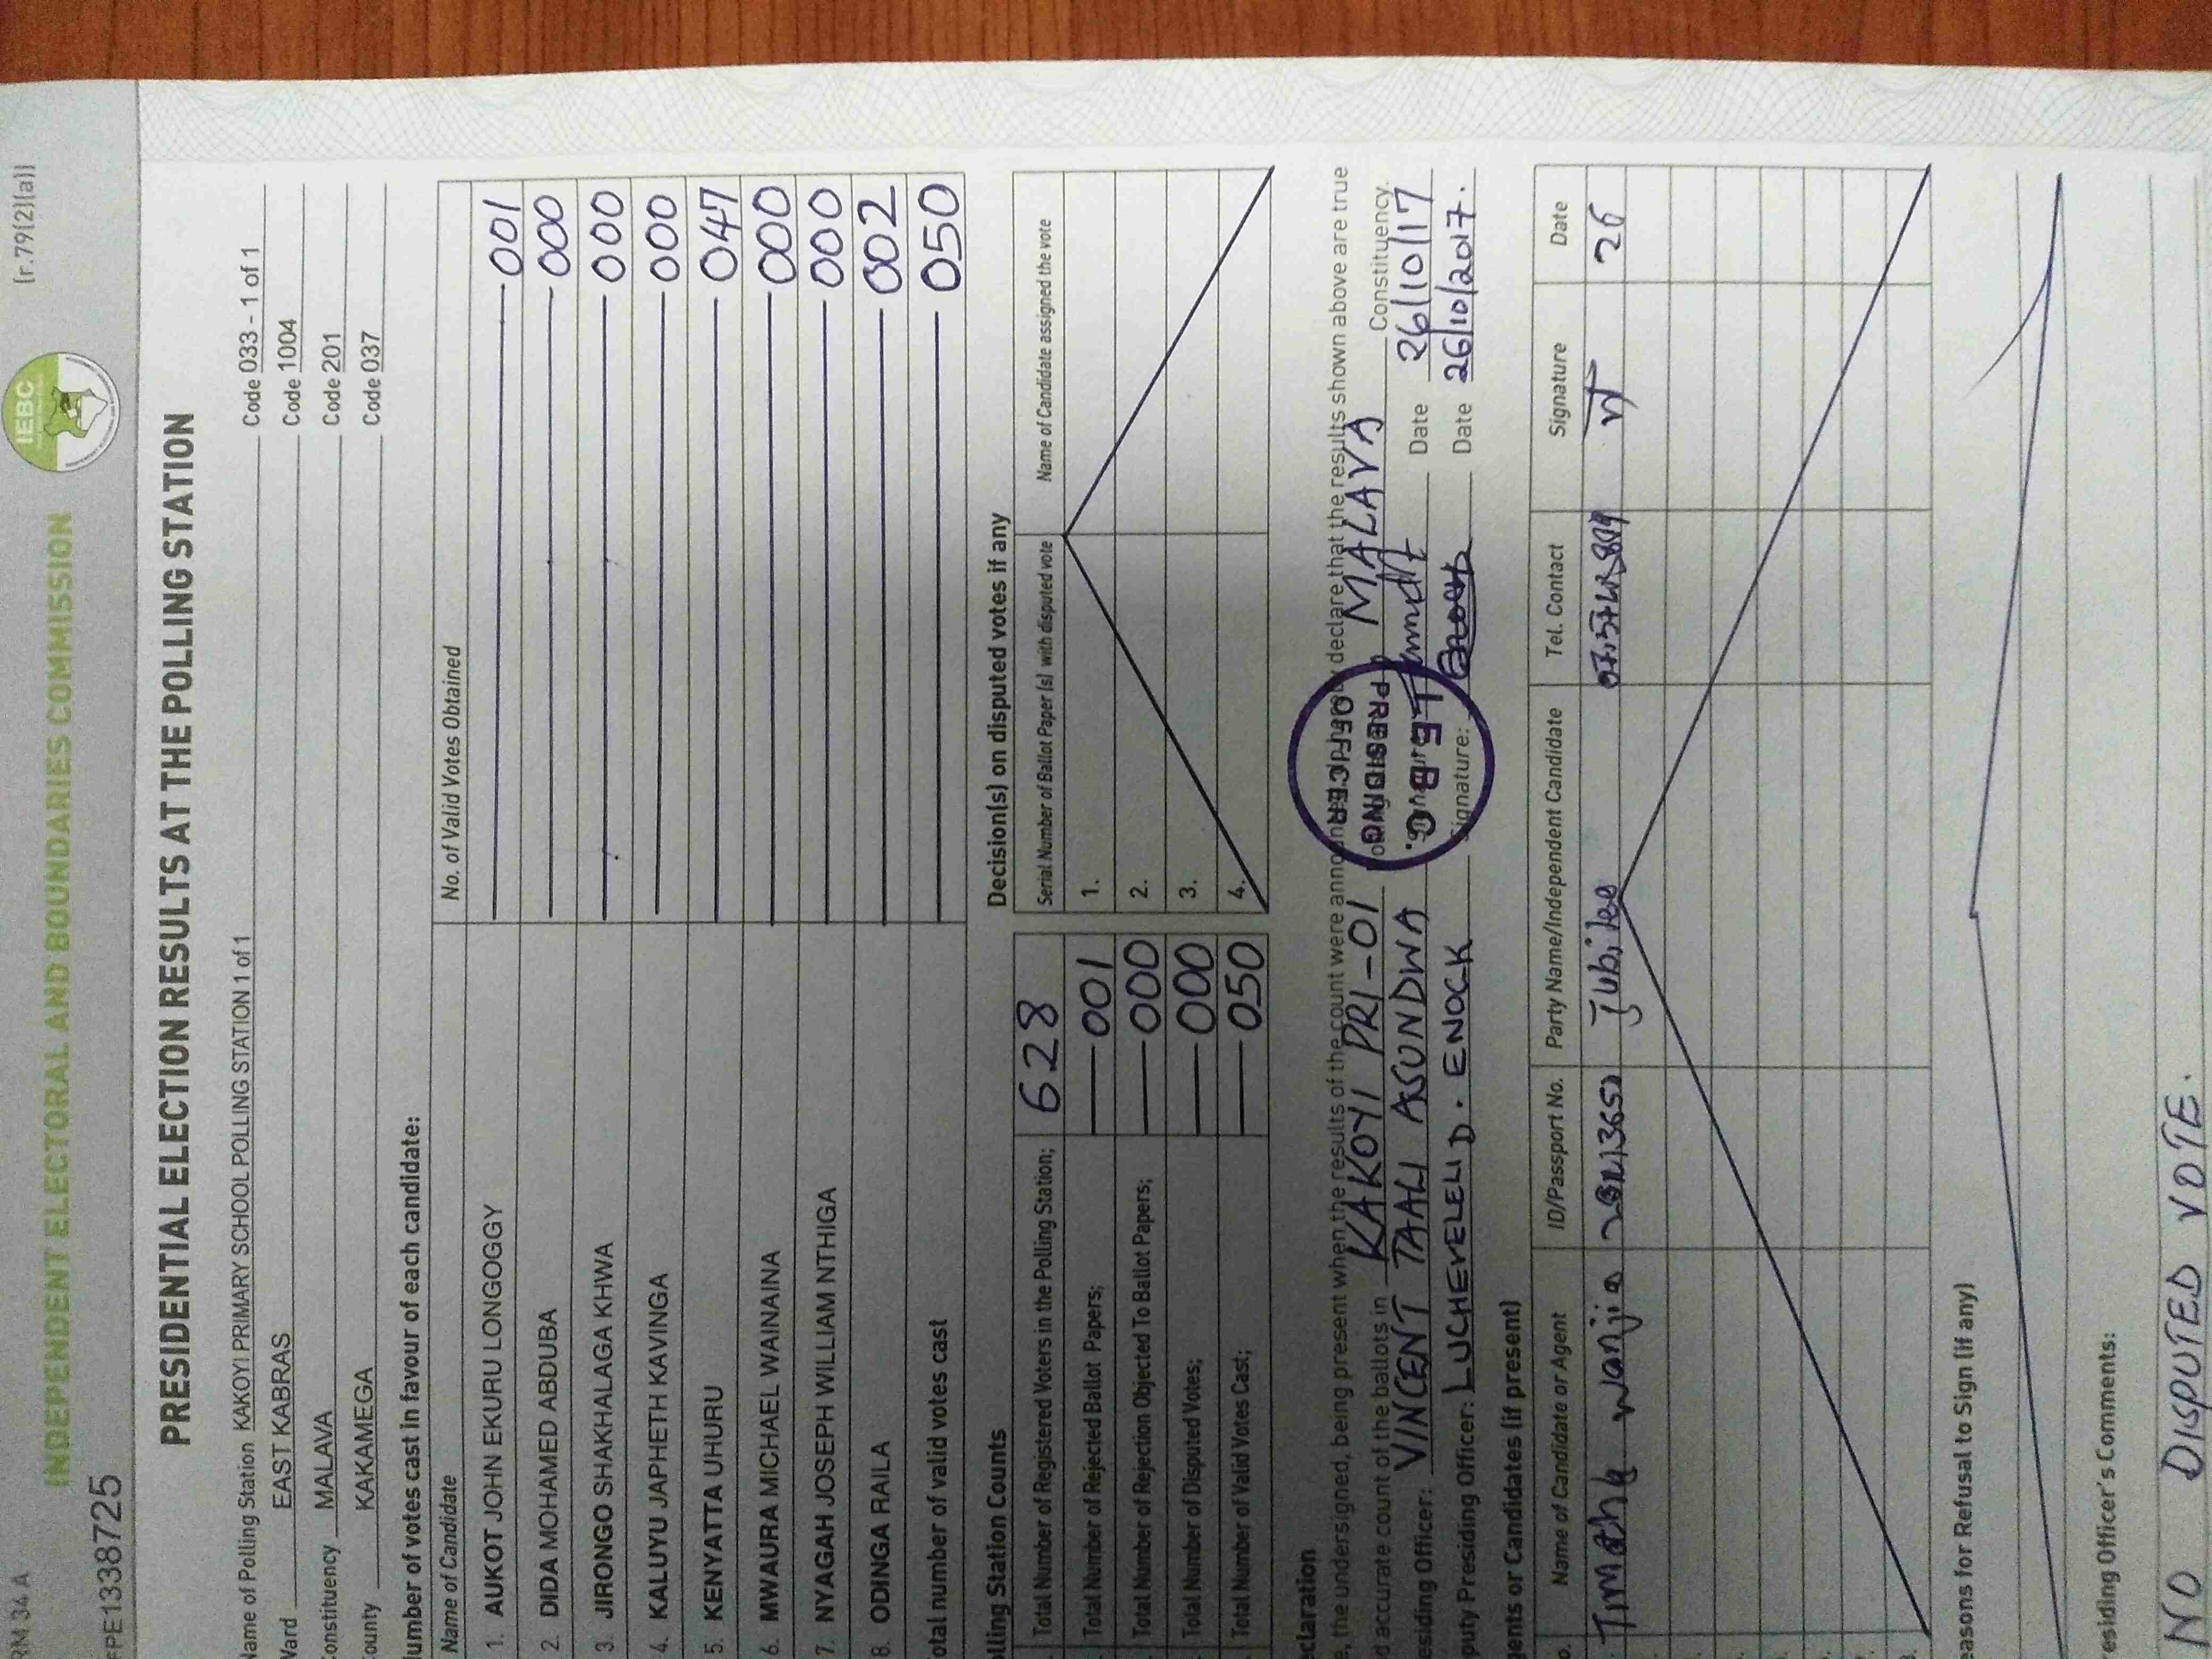 RM 34 A
[r.79(2)(a)]
IEBC
INDEPENDENT ELECTORAL AND BOUNDARIES COMMISSION
PE1338725
PRESIDENTIAL ELECTION RESULTS AT THE POLLING STATION
Name of Polling Station KAKOYI PRIMARY SCHOOL POLLING STATION 1 of 1 Code 033 - 1 of 1
Ward EAST KABRAS Code 1004
onstituency MALAVA Code 201
ounty KAKAMEGA Code 037
umber of votes cast in favour of each candidate:
Name of Candidate No. of Valid Votes Obtained
1. AUKOT JOHN EKURU LONGOGGY 001
2. DIDA MOHAMED ABDUBA 000
3. JIRONGO SHAKHALAGA KHWA 000
4. KALUYU JAPHETH KAVINGA 000
5. KENYATTA UHURU 047
6. MWAURA MICHAEL WAINAINA 000
7. NYAGAH JOSEPH WILLIAM NTHIGA 000
8. ODINGA RAILA 002
otal number of valid votes cast 050
lling Station Counts
Total Number of Registered Voters in the Polling Station; 628
Total Number of Rejected Ballot Papers; 001
Total Number of Rejection Objected To Ballot Papers; 000
Total Number of Disputed Votes; 000
Total Number of Valid Votes Cast; 050
Decision(s) on disputed votes if any
Serial Number of Ballot Paper (s) with disputed vote Name of Candidate assigned the vote
1.
2.
3.
4.
eclaration
e, the undersigned, being present when the results of the count were declare that the results shown above are true
d accurate count of the ballots in KAKOYI PRI-01 MALAVA Constituency.
esiding Officer: VINCENT TAALI ASUNDWA Date 26/10/17
puty Presiding Officer: LUCHEVELELI D. ENOCK Signature: Date 26/10/2017.
PRESIDING OFFICER
I.E.B.C.
gents or Candidates (if present)
o. Name of Candidate or Agent ID/Passport No. Party Name/Independent Candidate Tel. Contact Signature Date
wanjia jubilee 26
easons for Refusal to Sign (if any)
residing Officer's Comments:
NO DISPUTED VOTE.